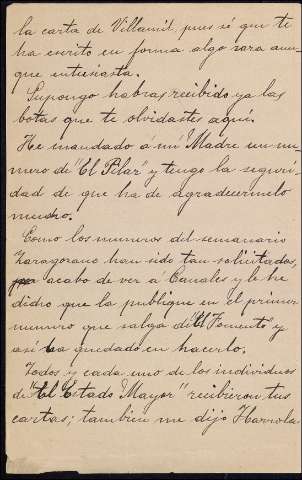 la carta de Villamil, pues sé que te
ha escrito en forma algo rara aun-
que entusiasta.
Supongo habras recibido ya las
botas que te olvidastes aquí.
He mandado á mi Madre un nu-
mero de "El Pilar" y tengo la seguri-
dad de que ha de agradecermelo
mucho.
Como los numeros del semanario
Zaragozano han sido tan solicitados,
acabo de ver á Canales y le he
dicho que la publique en el primer
numero que salga de "El Fomento" y
así ha quedado en hacerlo.
Todos y cada uno de los individuos
de "El Estado Mayor" recibieron tus
cartas; tambien me dijo